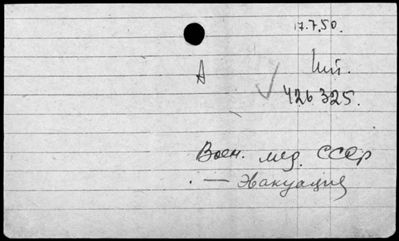 17.7.50.
А
Шт.
426 325.
Воен. мед. СССР
— Эвакуация